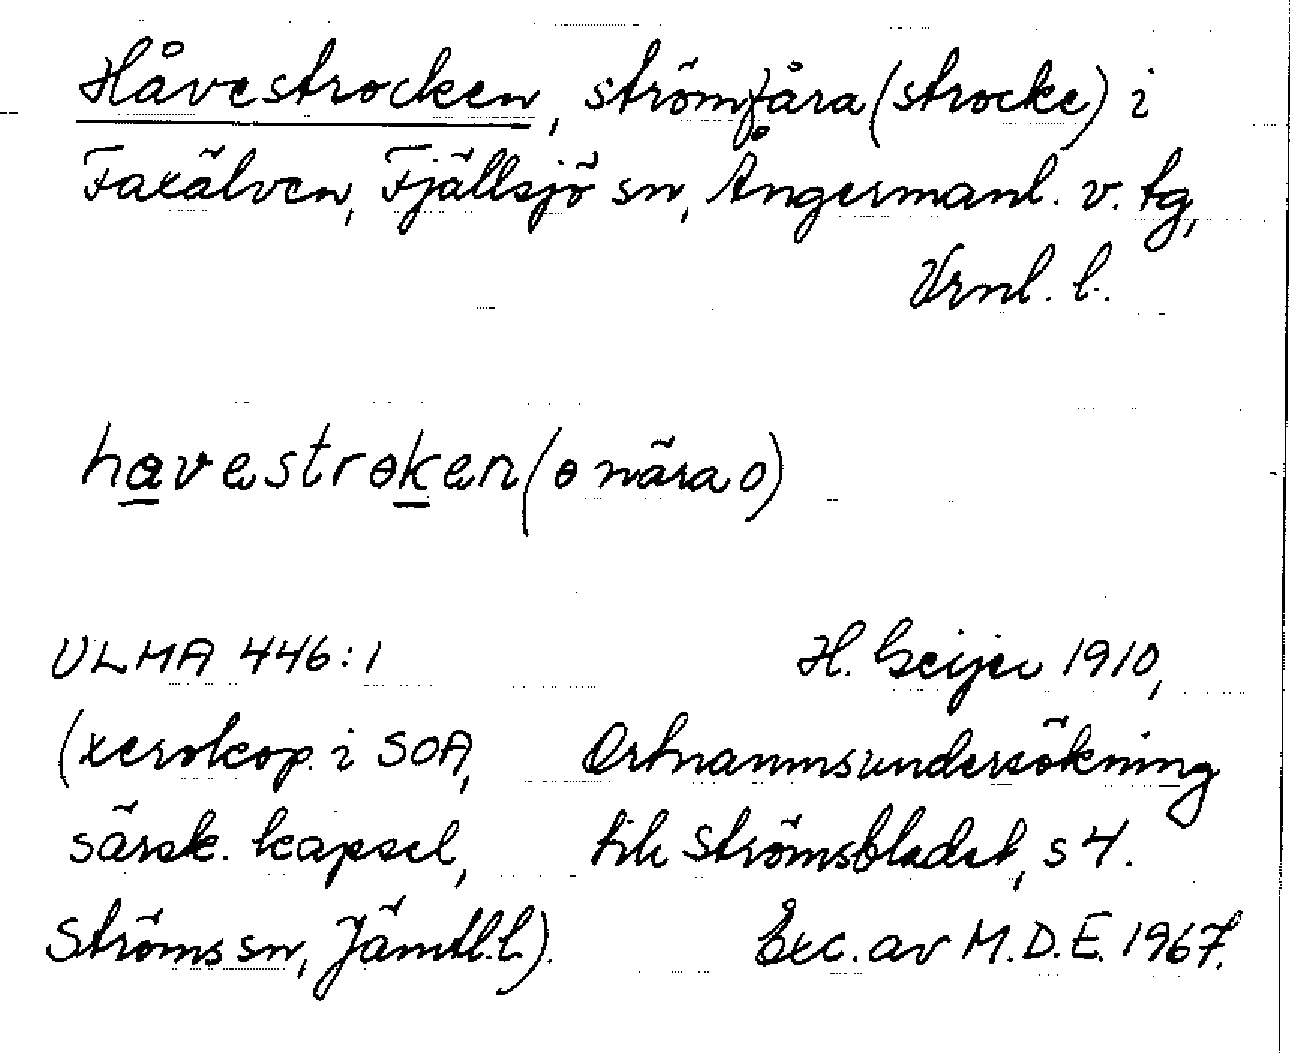 Håvestrocken, strömfåra (strocke) i
Faxälven, Fjällsjö sn, Ångermanl. v. tg,
Vrnl. l.
havestrɵken (ɵ nära o)
ULMA 446:1 H. Geijer 1910,
(xerokop. i SOA, Ortnamnsundersökning
särsk. kapsel, till Strömsbladet, s 4.
Ströms sn, Jämtl. l.). Exc. av M.D.E. 1967.